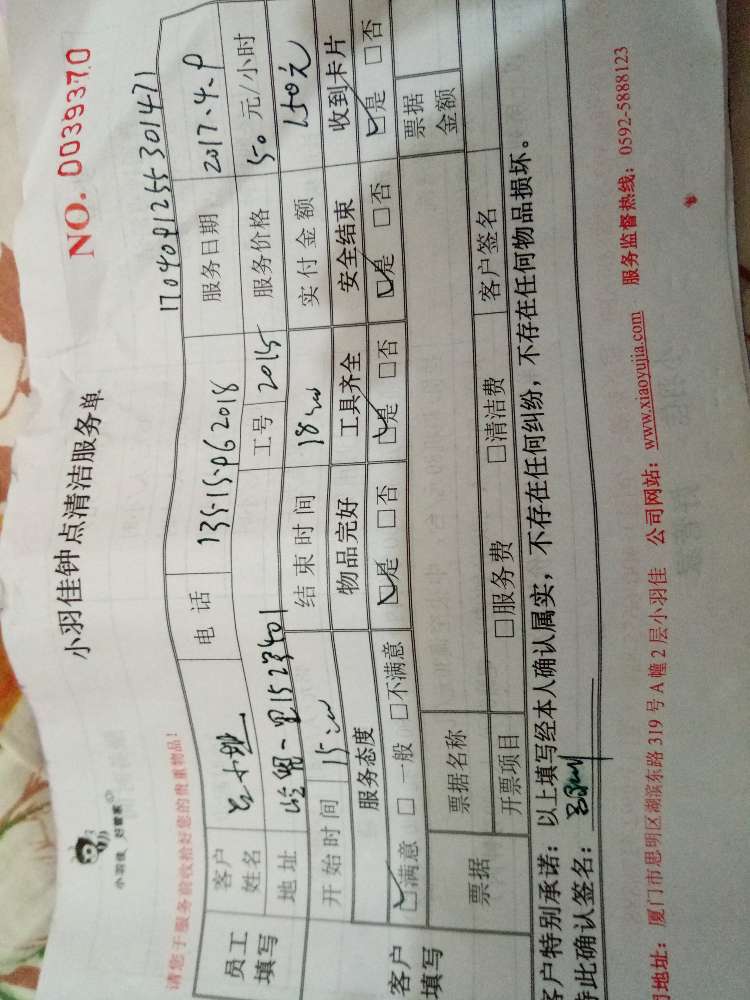 小羽佳 好管家
小羽佳钟点清洁服务单
NO. 0039370
请您于服务前收拾好您的贵重物品！
1704091255301471
员工填写 客户姓名 电话 服务日期 2017.4.9
地址 工号 2015 服务价格 50 元/小时
开始时间 15:00 结束时间 18:00 实付金额 150元
客户填写 服务态度 物品完好 工具齐全 安全结束 收到卡片
☑满意 □一般 □不满意 ☑是 □否 ☑是 □否 ☑是 □否 ☑是 □否
票据 票据名称 票据金额
开票项目 □服务费 □清洁费 客户签名
客户特别承诺：以上填写经本人确认属实，不存在任何纠纷，不存在任何物品损坏。
特此确认签名：
地址：厦门市思明区湖滨东路 319 号 A 幢 2 层小羽佳 公司网站：www.xiaoyujia.com 服务监督热线：0592-5888123